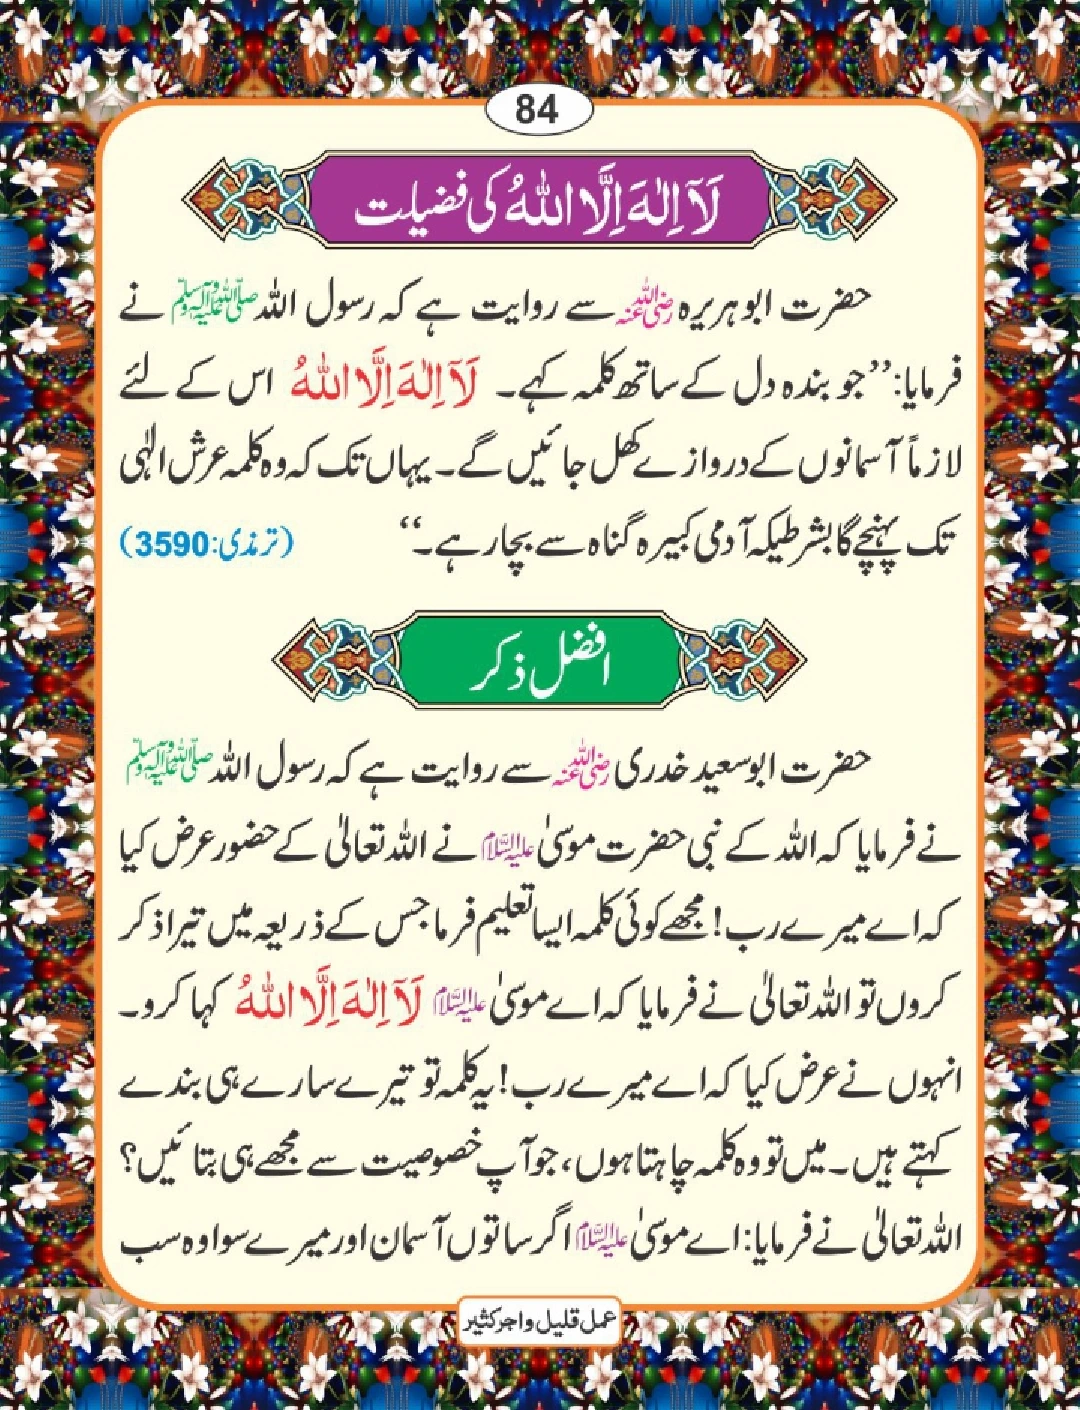 84
لَآ اِلٰہَ اِلَّا اللّٰہُ کی فضیلت
حضرت ابوہریرہ رضی اللہ عنہ سے روایت ہے کہ رسول اللہ صلی اللہ علیہ وآلہ وسلم نے
فرمایا: ’’جو بندہ دل کے ساتھ کلمہ کہے۔ لَآ اِلٰہَ اِلَّا اللّٰہُ اس کے لئے
لازماً آسمانوں کے دروازے کھل جائیں گے۔ یہاں تک کہ وہ کلمہ عرش الٰہی
تک پہنچے گا بشرطیکہ آدمی کبیرہ گناہ سے بچا رہے۔‘‘ (ترمذی:3590)
افضل ذکر
حضرت ابوسعید خدری رضی اللہ عنہ سے روایت ہے کہ رسول اللہ صلی اللہ علیہ وآلہ وسلم
نے فرمایا کہ اللہ کے نبی حضرت موسیٰ علیہ السلام نے اللہ تعالیٰ کے حضور عرض کیا
کہ اے میرے رب! مجھے کوئی کلمہ ایسا تعلیم فرما جس کے ذریعہ میں تیرا ذکر
کروں تو اللہ تعالیٰ نے فرمایا کہ اے موسیٰ علیہ السلام لَآ اِلٰہَ اِلَّا اللّٰہُ کہا کرو۔
انہوں نے عرض کیا کہ اے میرے رب! یہ کلمہ تو تیرے سارے ہی بندے
کہتے ہیں۔ میں تو وہ کلمہ چاہتا ہوں، جو آپ خصوصیت سے مجھے ہی بتائیں؟
اللہ تعالیٰ نے فرمایا: اے موسیٰ علیہ السلام اگر ساتوں آسمان اور میرے سوا وہ سب
عمل قلیل واجر کثیر